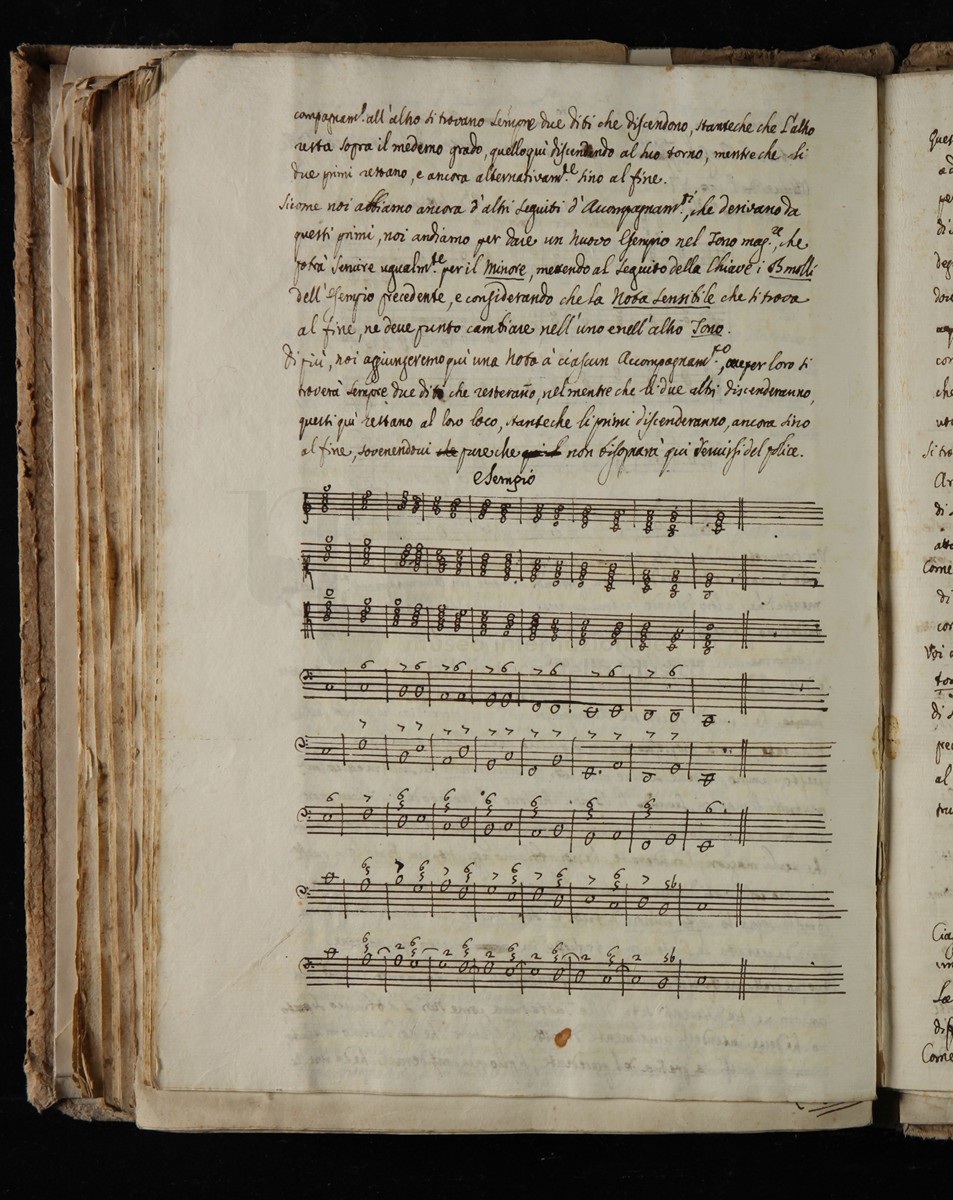 compagnam.ᵗ all'altro si trovano sempre due diti che discendono, stanteche che l'altro
resta sopra il medemo grado, quello qui discendendo al suo torno, mentre che li
due primi restano, e ancora alternativam.ᵗᵉ sino al fine.
Sicome noi abbiamo ancora d'altri seguiti d'Acompagnam.ᵗⁱ, che derivano da
questi primi, noi andiamo per dare un nuovo Esempio nel Tono mag.ʳᵉ, che
potrà servire ugualm.ᵗᵉ per il Minore, mettendo al seguito della Chiave i B molli
dell'Esempio precedente, e considerando che la Nota sensibile che si trova
al fine, ne deve punto cambiare nell'uno e nell'altro Tono.
Di più, noi aggiungeremo qui una Nota à ciascun Accompagnam.ᵗᵒ, per loro si
troverà sempre due diti che resterano, nel mentre che li due altri discenderanno,
questi qui restano al loro loco, stanteche li primi discenderanno, ancora sino
al fine, sovenendovi pure che non bisognarà qui servirsi del police.
Esempio
6 7 6 7 6 7 6 7 6 7 6 7 6
7 7 7 7 7 7 7 7 7 7 7 7 7
6 7 6 5 6 5 6 5 6 5 6 5 6 5 6
6 5 7 6 5 7 6 5 7 6 5 7 6 5 7 6 5 7 5b
6 5 2 6 5 2 6 5 2 6 5 2 6 5 2 6 5 2 5b